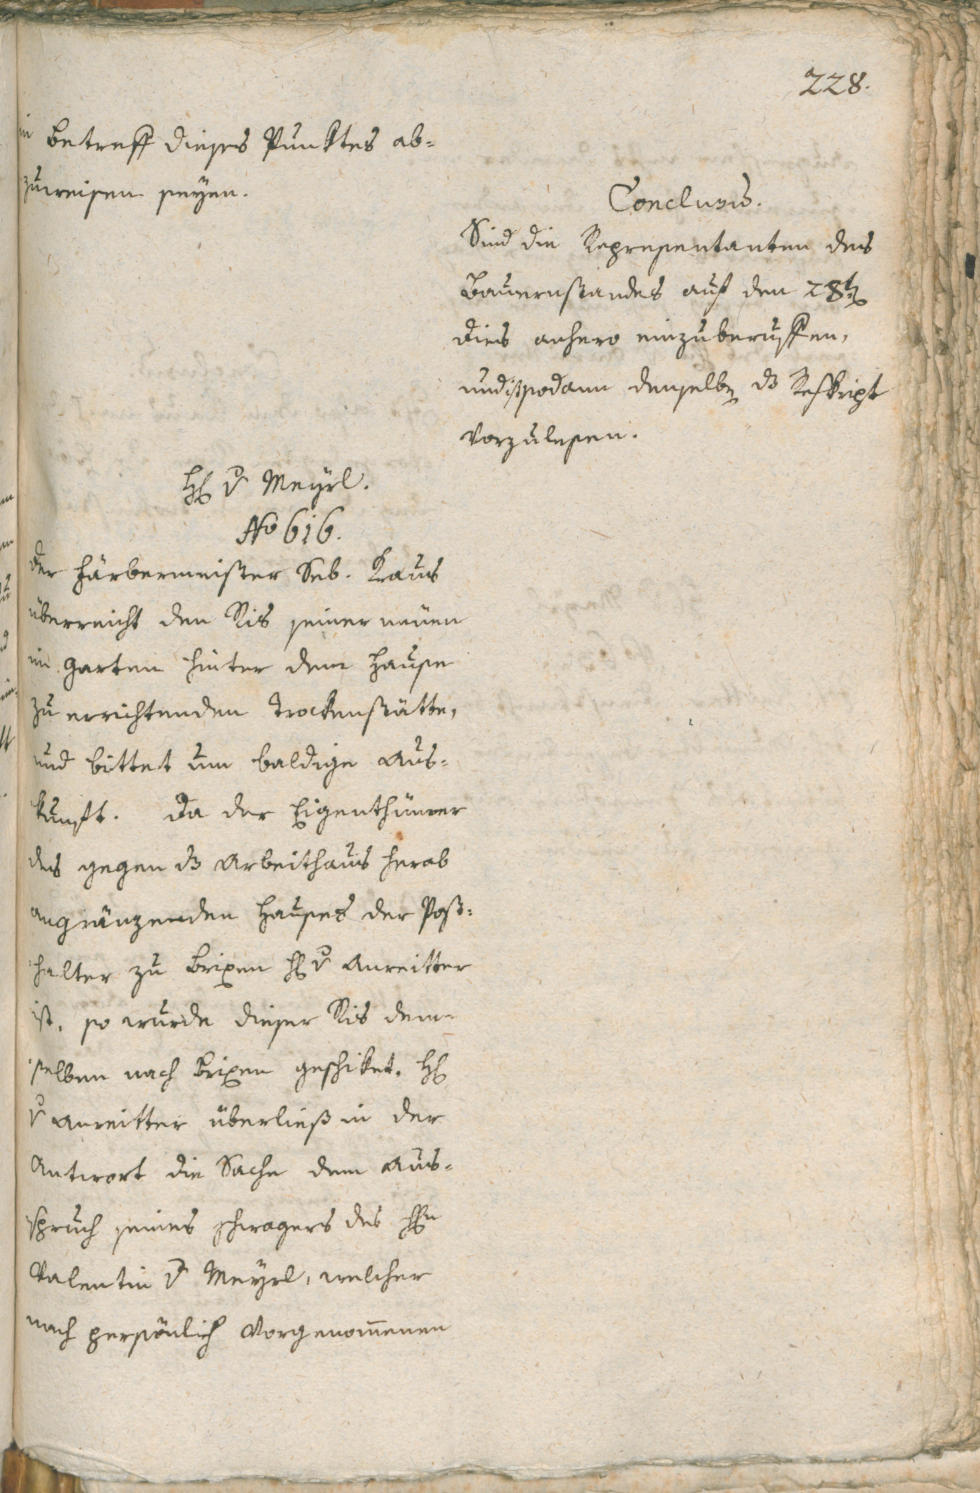 228.
in betreff dieses Punktes ab-
zuweisen seyen.
Conclusis.
Sind die Representanten des
Bauernstandes auf den 28t
dies anhero einzuberuffen,
und sodann denselben dz Reskript
vorzulesen.
H v Meyrl.
No 616.
Der Färbermeister Seb. Kraus
überreicht den Ris seiner neuen
im Garten hinter dem Hause
zu errichtenden Trockenstätte,
und bittet um baldige Aus-
kunft. Da der Eigenthümer
des gegen dz Arbeithaus herab
angränzenden Hauses der Post-
halter zu Brixen H v Anreitter
ist, so wurde dieser Ris dem-
selben nach Brixen geschiket. H
v Anreitter überließ in der
Antwort die Sache dem Aus-
spruch seines Schwagers des Hn
Valentin v Meyrl, welcher
nach persönlich vorgenom̄enen